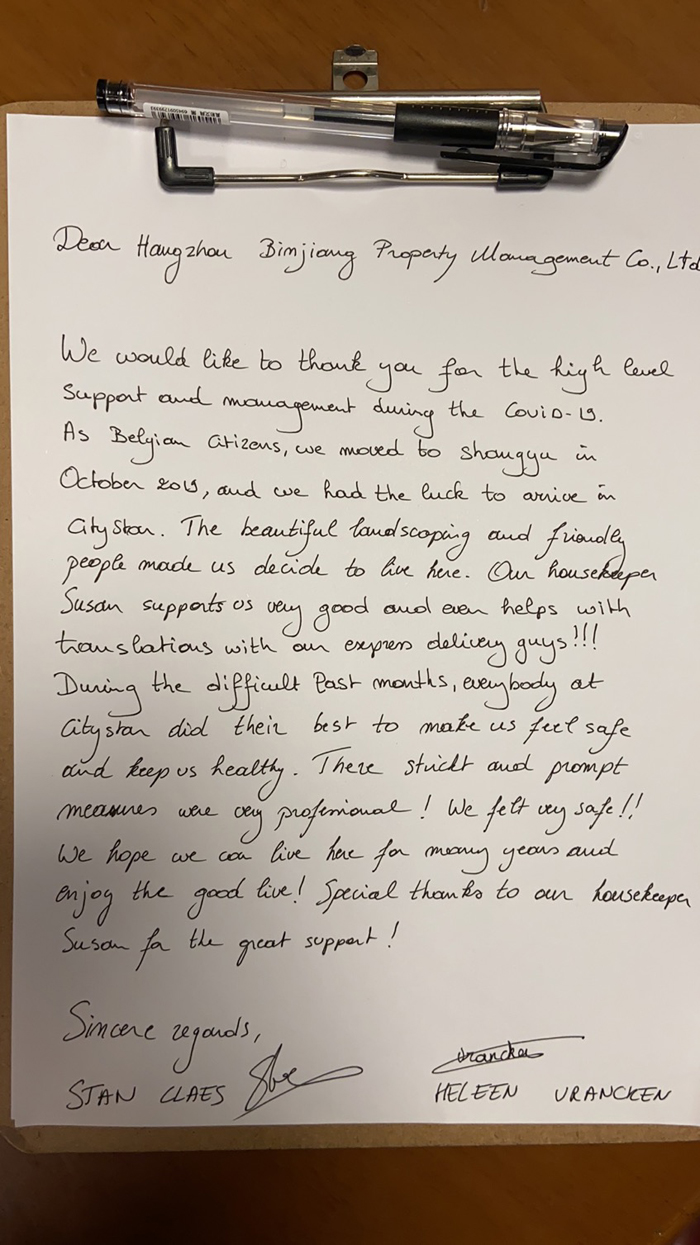 Dear Hangzhou Binjiang Property Management Co., Ltd
We would like to thank you for the high level
support and management during the Covid-19.
As Belgian citizens, we moved to Shangyu in
October 2019, and we had the luck to arrive in
CityStar. The beautiful landscaping and friendly
people made us decide to live here. Our housekeeper
Susan supports us very good and even helps with
translations with our express delivery guys!!!
During the difficult Past months, everybody at
Citystar did their best to make us feel safe
and keep us healthy. There strickt and prompt
measures were very professional! We felt very safe!!
We hope we can live here for many years and
enjoy the good live! Special thanks to our housekeeper
Susan for the great support!
Sincere regards,
Vrancken
STAN CLAES
HELEEN VRANCKEN